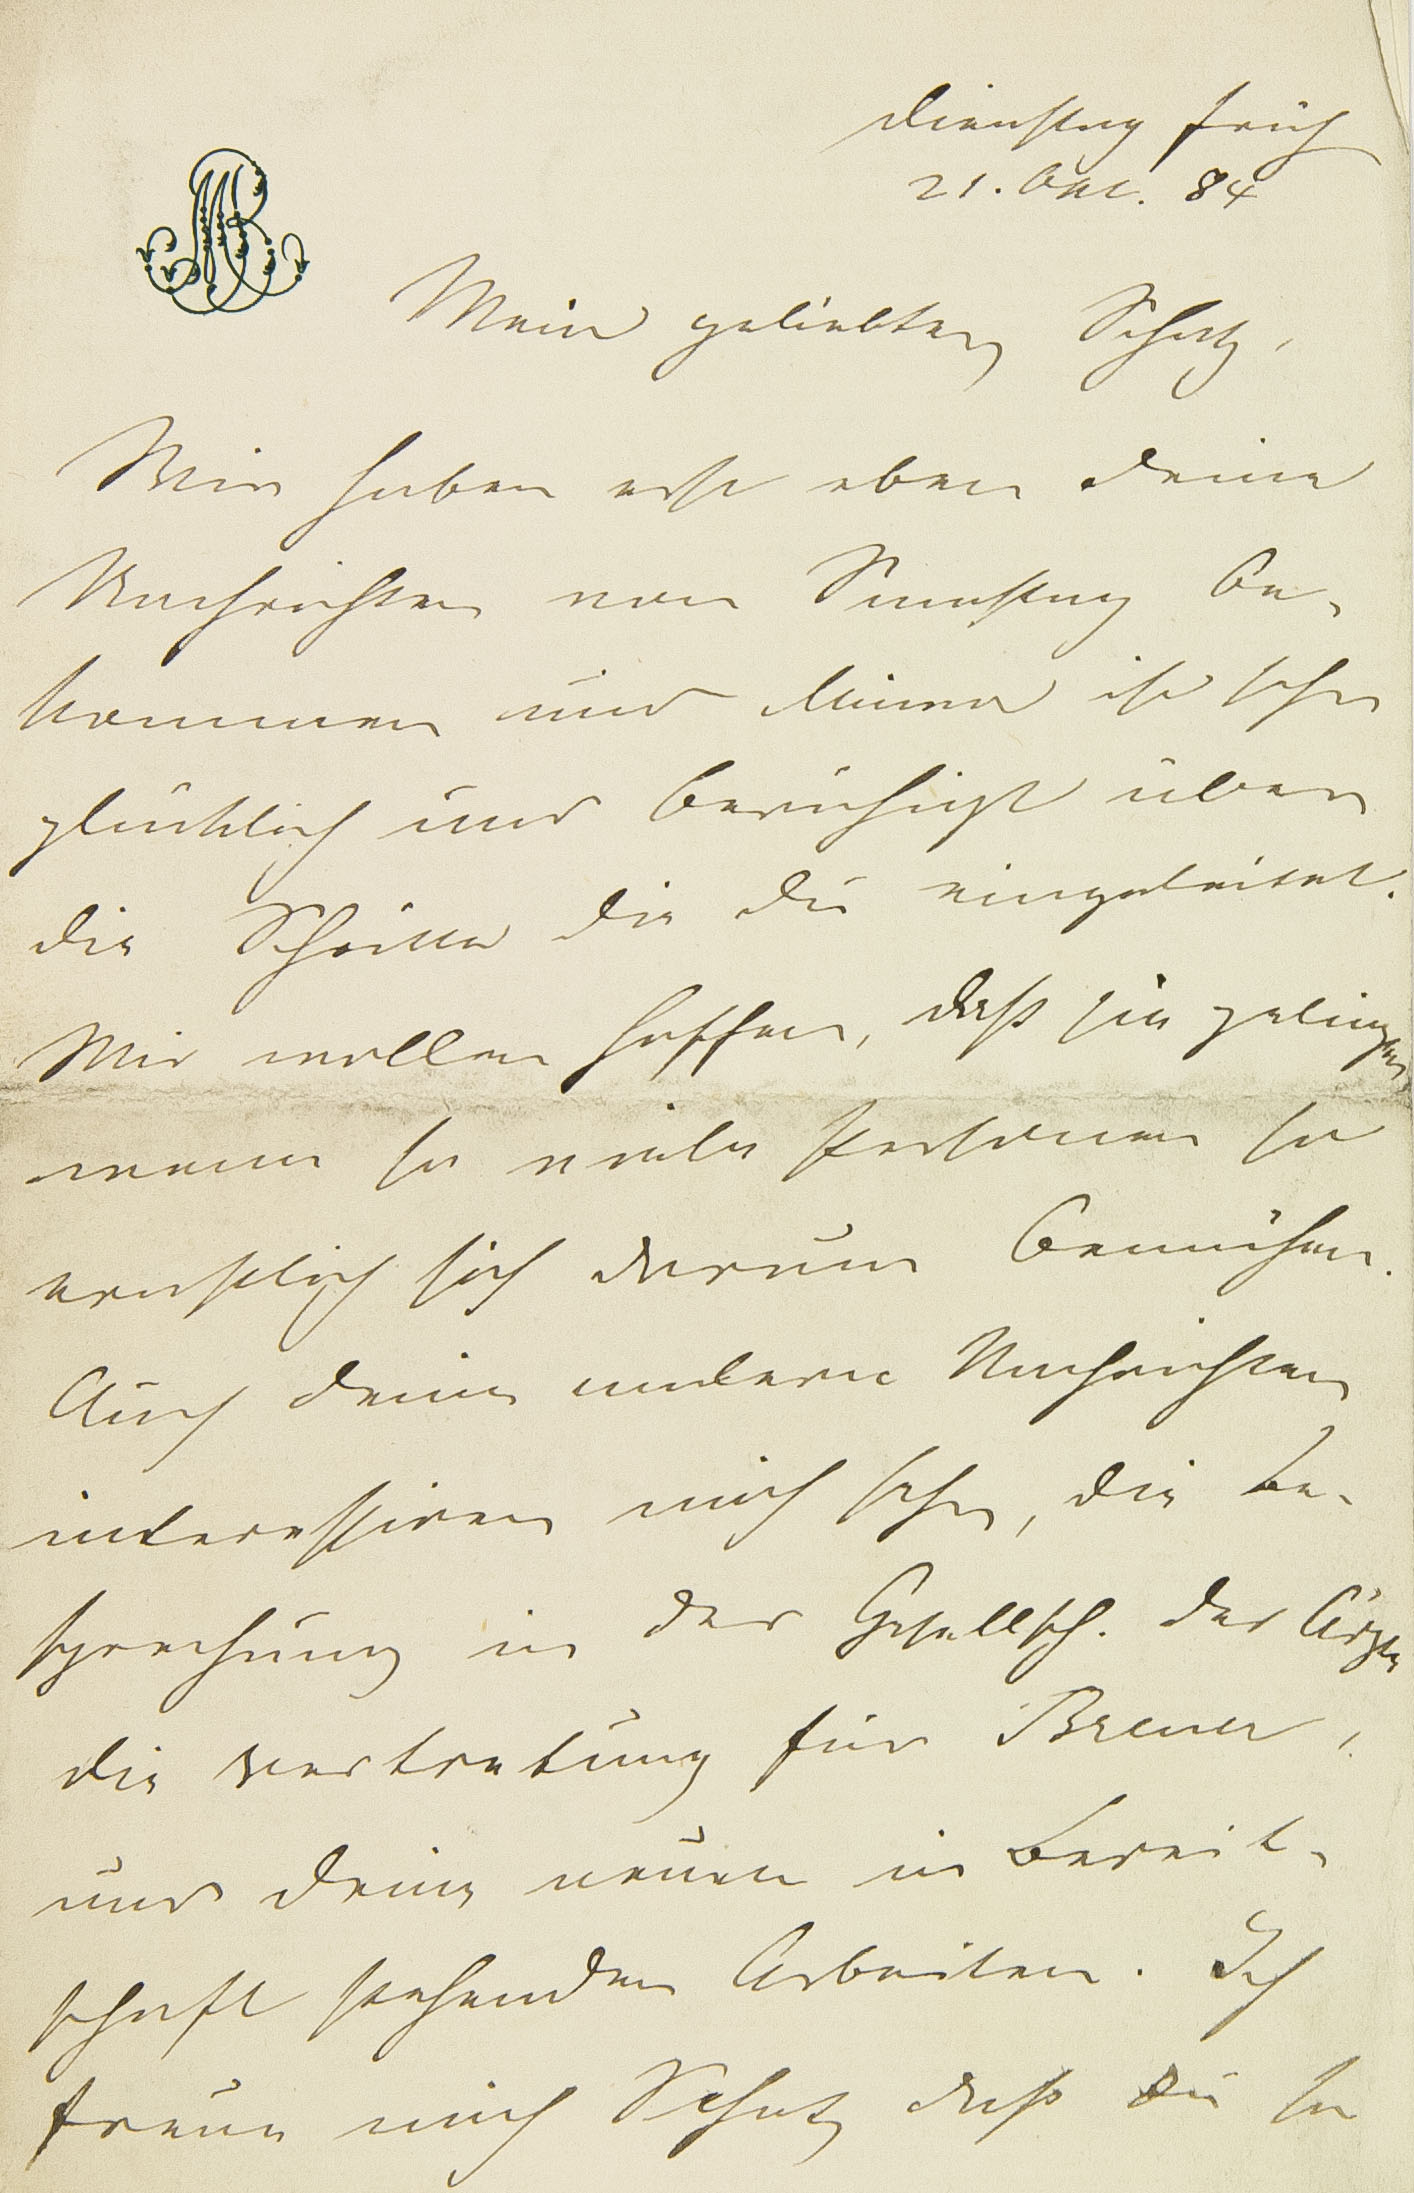 MB
Dienstag früh
21. Okt. 84
Mein geliebter Schatz,
Wir haben erst eben deine
Nachrichten von Samstag be-
kommen und Minna ist sehr
glücklich und beruhigt über
die Schritte die Du eingeleitet.
Wir wollen hoffen, daß sie gelingen
wenn so viele Personen so
ernstlich sich darum bemühen.
Auch deine anderen Nachrichten
interessiren mich sehr, die Be-
sprechung in der Gesellsch. der Ärzte
die Vertretung für Breuer,
und deine neuen in Bereit-
schaft stehenden Arbeiten. Ich
freue mich Schatz daß Du so